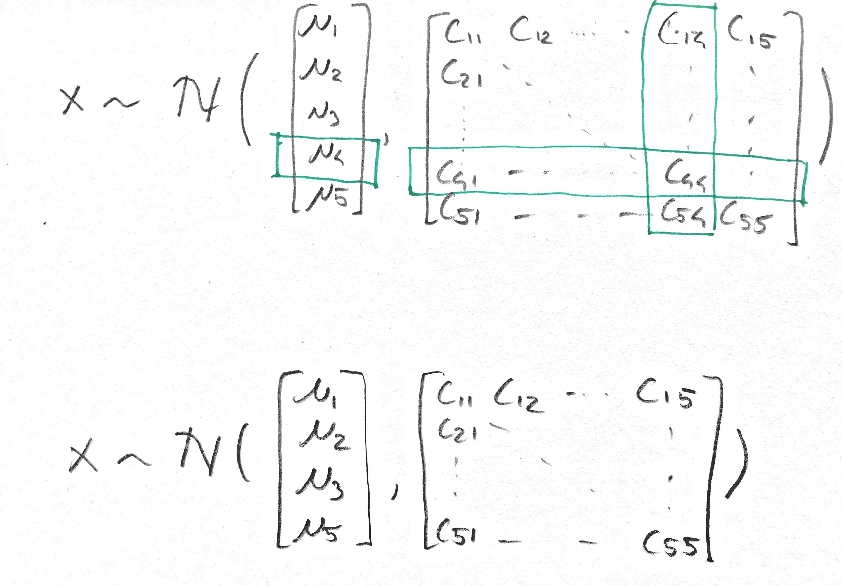 x ~ N ( [ μ1 μ2 μ3 μ4 μ5 ] , [ C11 C12 ... C14 C15
C21
C41 - - - C44
C51 - - - C54 C55 ] )
x ~ N ( [ μ1 μ2 μ3 μ5 ] , [ C11 C12 ... C15
C21
C51 - - C55 ] )